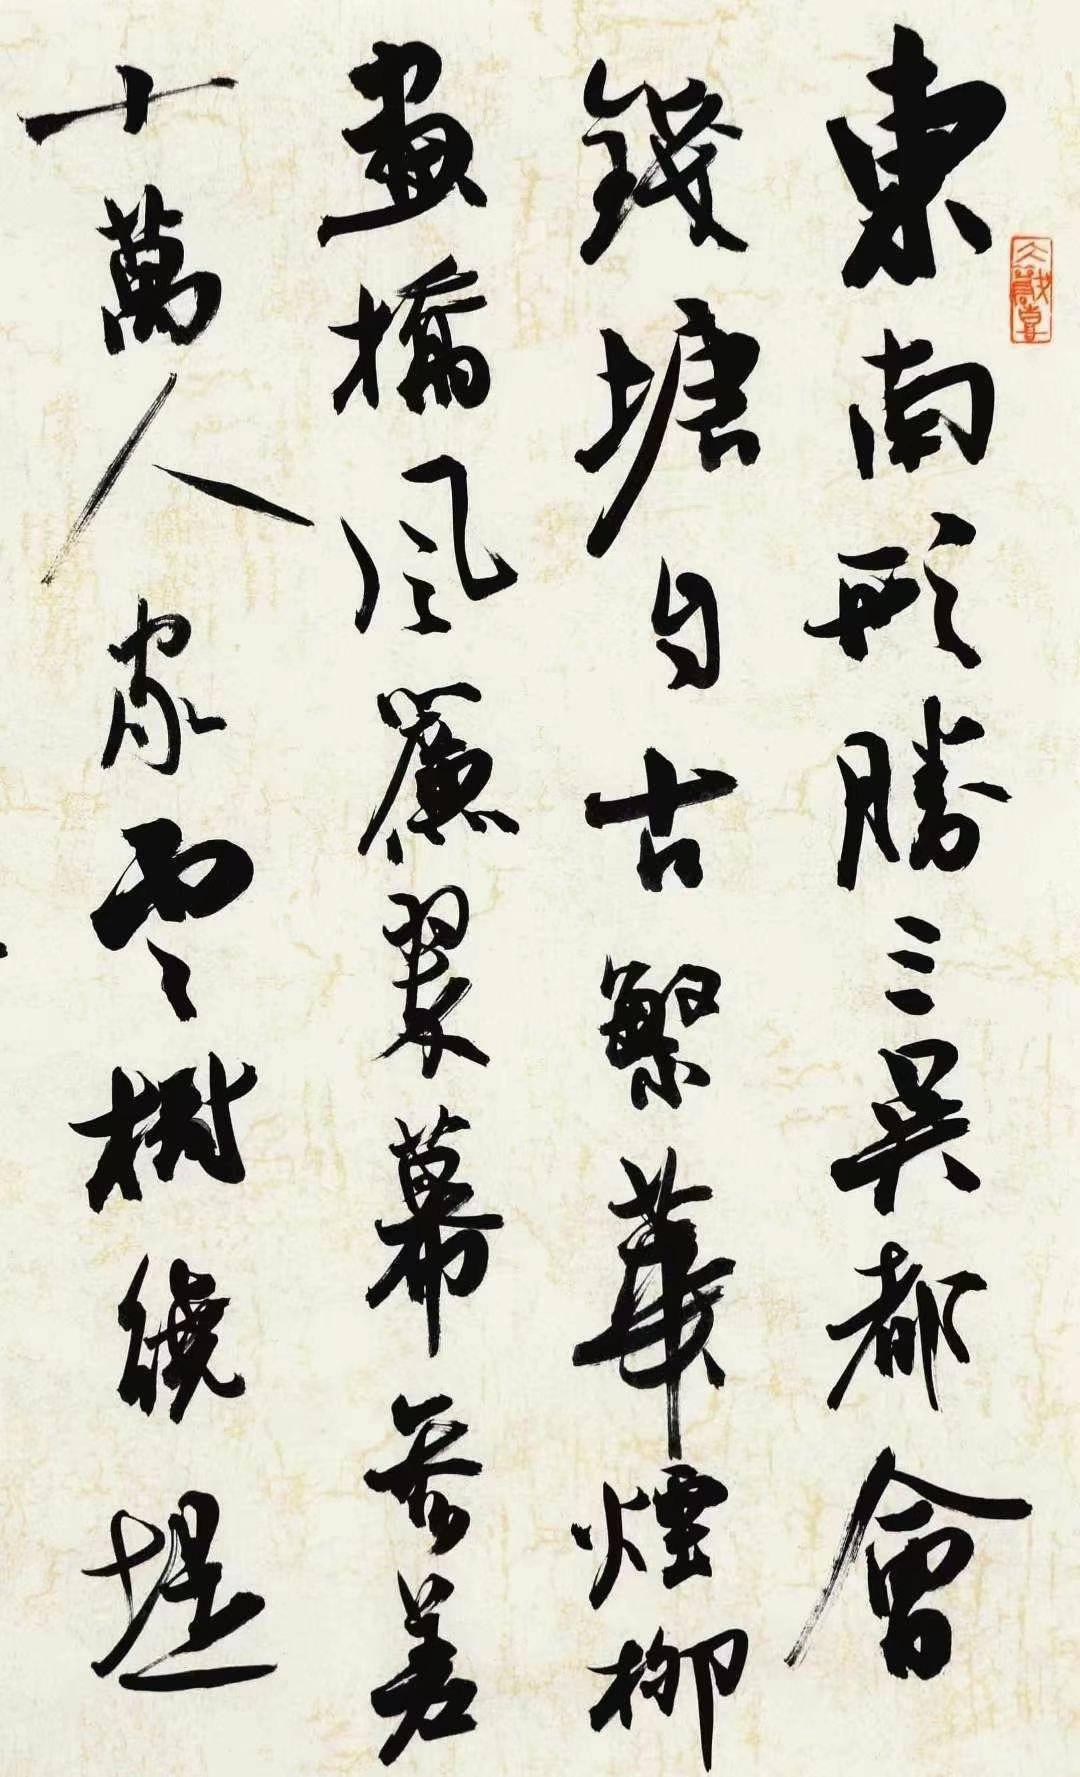 東南形勝三吳都會
錢塘自古繁華煙柳
畫橋風簾翠幕參差
十萬人家雲樹繞堤